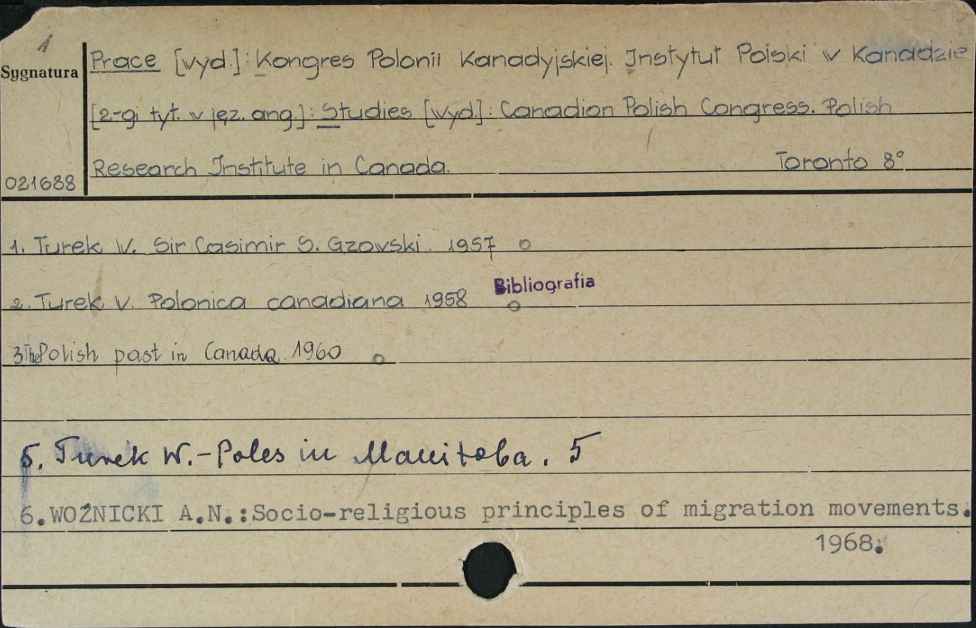 1
Sygnatura
Prace [wyd.]: Kongres Polonii Kanadyjskiej. Instytut Polski w Kanadzie
[2-gi tyt. w jęz. ang.]: Studies [wyd.]: Canadian Polish Congress. Polish
021688
Research Institute in Canada. Toronto 8°
1. Turek W. Sir Casimir S. Gzowski. 1957 o
2. Turek W. Polonica canadiana 1958 Bibliografia o
3 The Polish past in Canada. 1960 o
5. Turek W.-Poles in Manitoba. 5
6.WOŹNICKI A.N.:Socio-religious principles of migration movements.
1968.